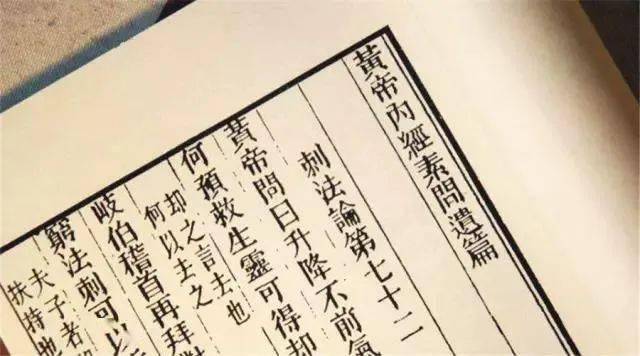 黃帝內經素問遺篇
刺法論第七十二
黃帝問曰升降不前氣
何預救生靈可得却
却之言去也
何以去之
岐伯稽首再拜對
窮法刺可以
夫子者
扶持也